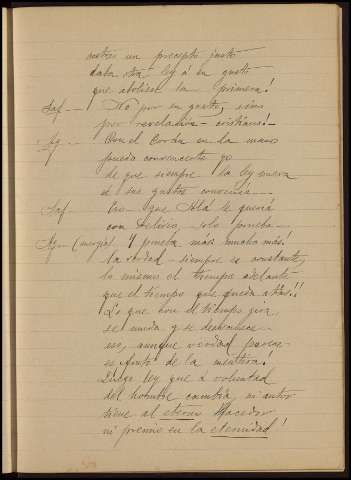 un precepto justo
daba otra ley á su gusto
que aboliese la primera!
Saf — No por su gusto, sino
por revelación — cristiano!
Ag — Con el Corán en la mano
pueda convencerte yo
de que siempre la ley nueva
á sus gustos convenía —
Saf — Eso que Alá le quería
con delirio, solo prueba —
Ag — Y prueba más, mucho más!
La verdad — siempre es constante,
lo mismo el tiempo adelante
que el tiempo que queda atrás!!
Lo que con el tiempo gira
se muda y se desvanece
eso, aunque verdad parece
es de la mentira!
Luego ley que á voluntad
del hombre cambia, ni autor
tiene al eterno Hacedor
ni premio en la eternidad!